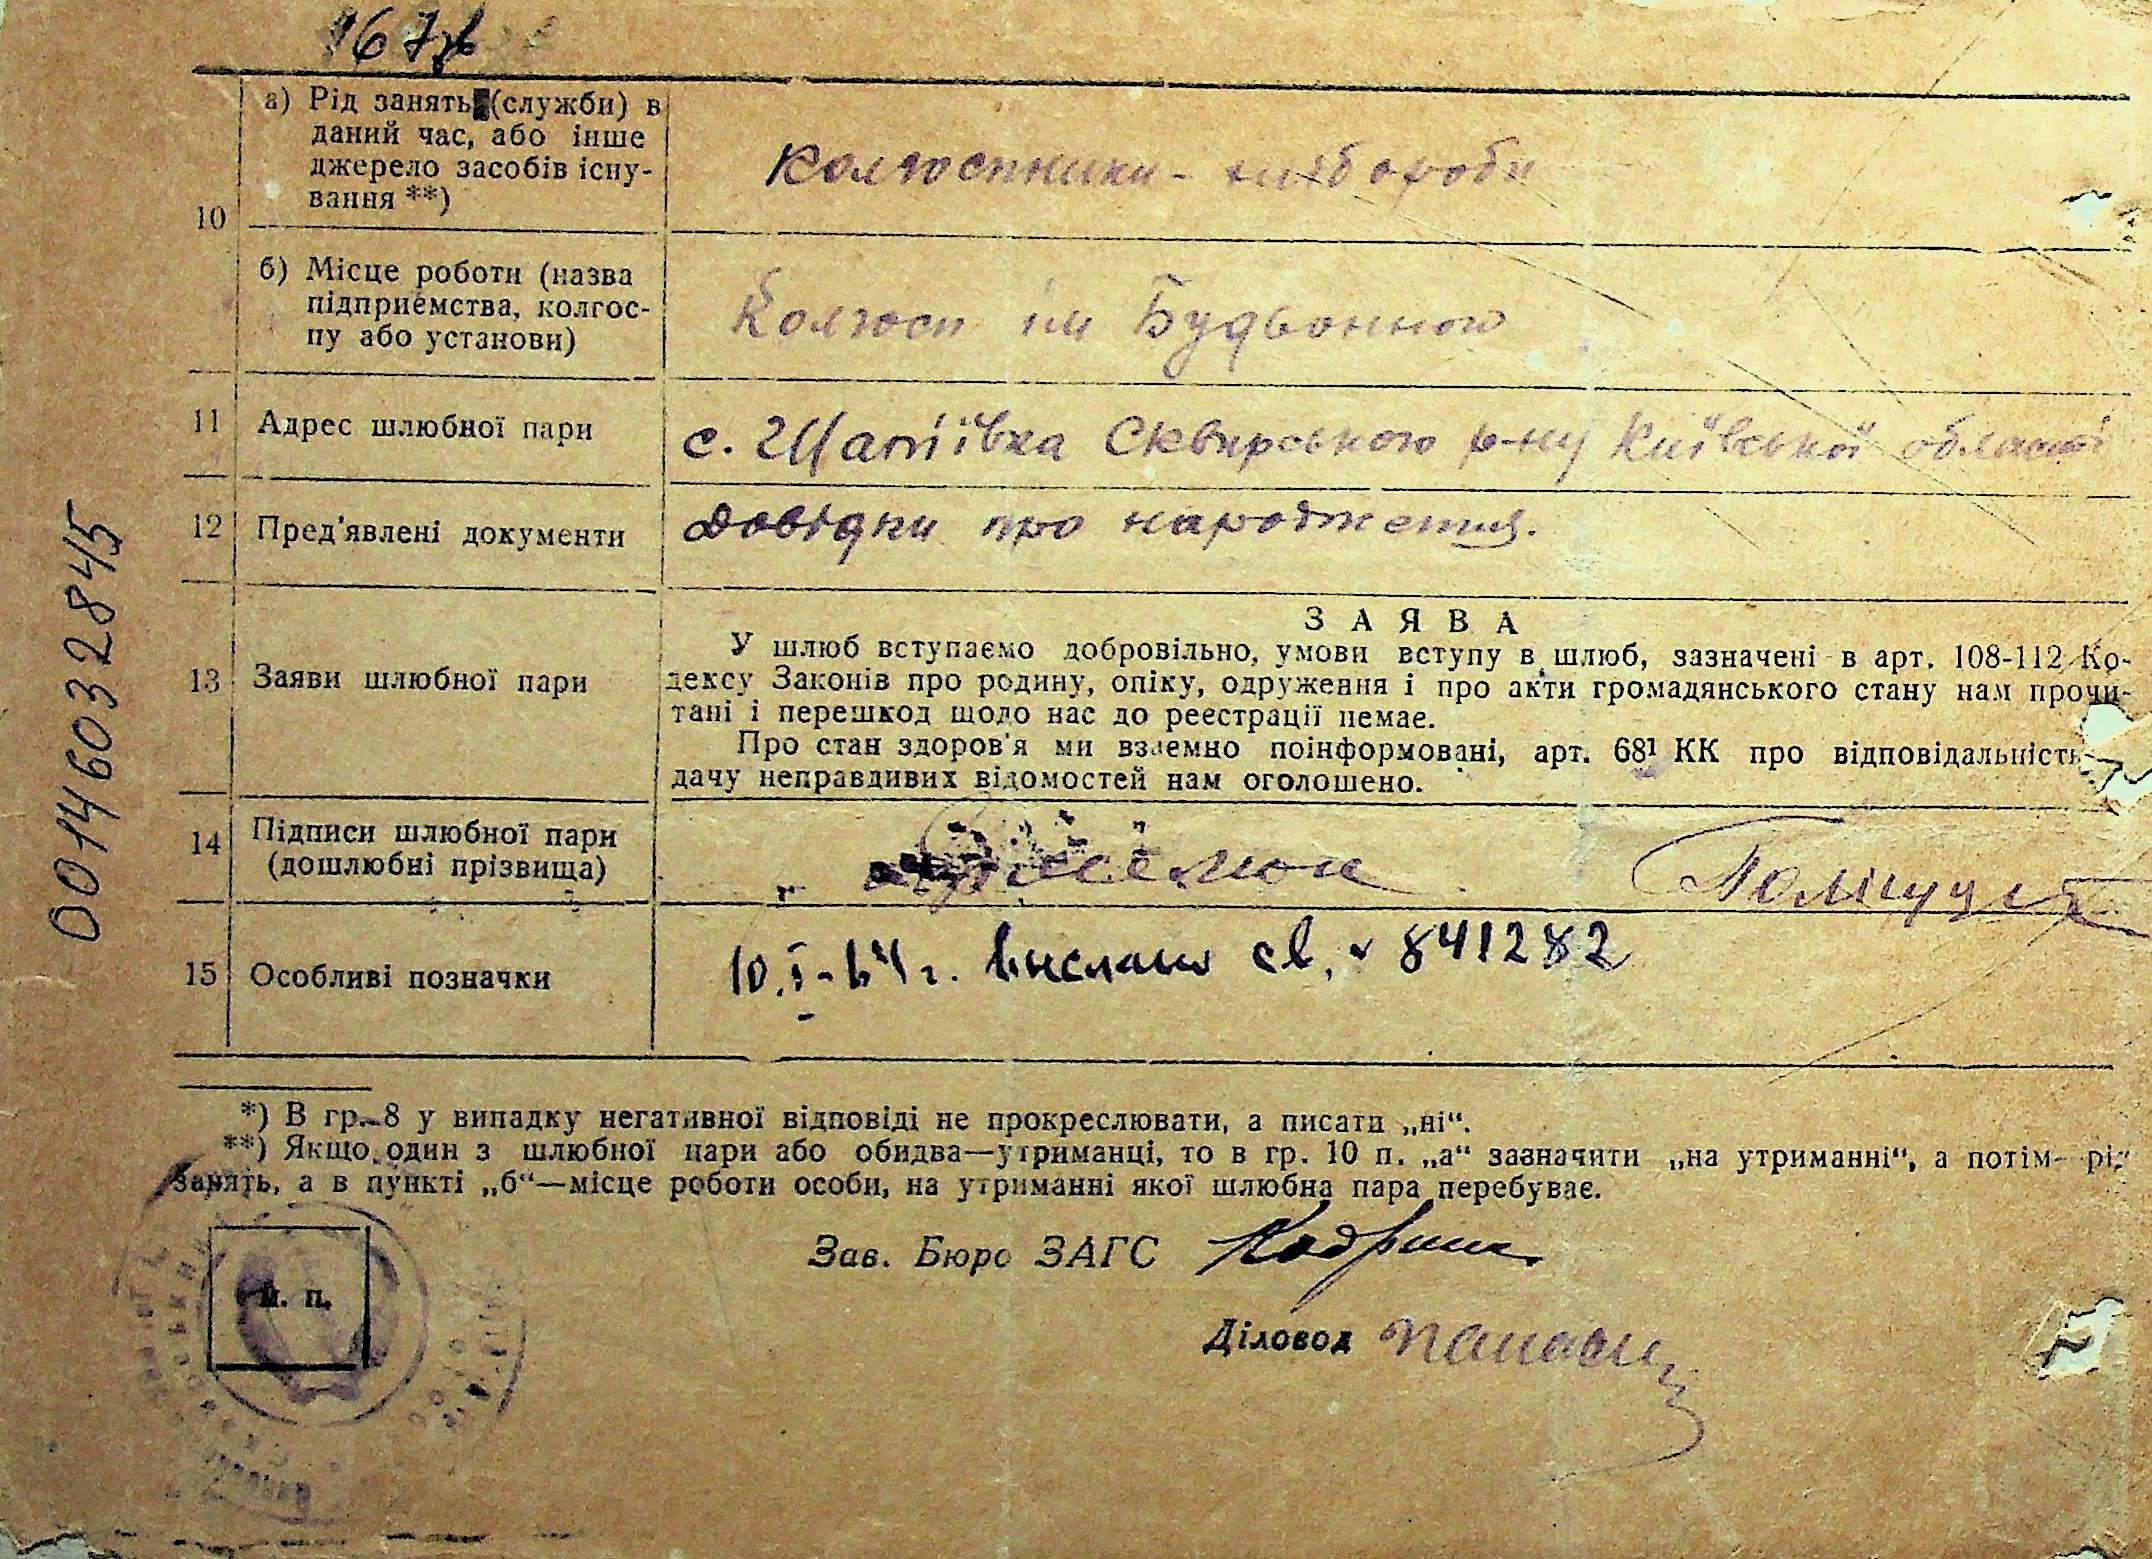 167
а) Рід занять (служби) в
даний час, або інше
джерело засобів існу-
вання **)
Колгоспники - хлібороби
10
б) Місце роботи (назва
підприємства, колгос-
пу або установи)
Колгосп ім Будьонного
11 Адрес шлюбної пари
с. Шапіївка Сквирського р-ну Київської області
12 Пред'явлені документи
Довідки про народження.
13 Заяви шлюбної пари
ЗАЯВА
У шлюб вступаємо добровільно, умови вступу в шлюб, зазначені в арт. 108-112 Ко-
дексу Законів про родину, опіку, одруження і про акти громадянського стану нам прочи-
тані і перешкод щодо нас до реєстрації немає.
Про стан здоров'я ми взаємно поінформовані, арт. 68¹ КК про відповідальність
дачу неправдивих відомостей нам оголошено.
14 Підписи шлюбної пари
(дошлюбні прізвища)
15 Особливі позначки
10.I-64 г. вислано св. 841282
*) В гр. 8 у випадку негативної відповіді не прокреслювати, а писати „ні“.
**) Якщо один з шлюбної пари або обидва—утриманці, то в гр. 10 п. „а“ зазначити „на утриманні“, а потім— рід
занять, а в пункті „б“—місце роботи особи, на утриманні якої шлюбна пара перебуває.
м. п.
Зав. Бюро ЗАГС
Діловод
0014603 2845